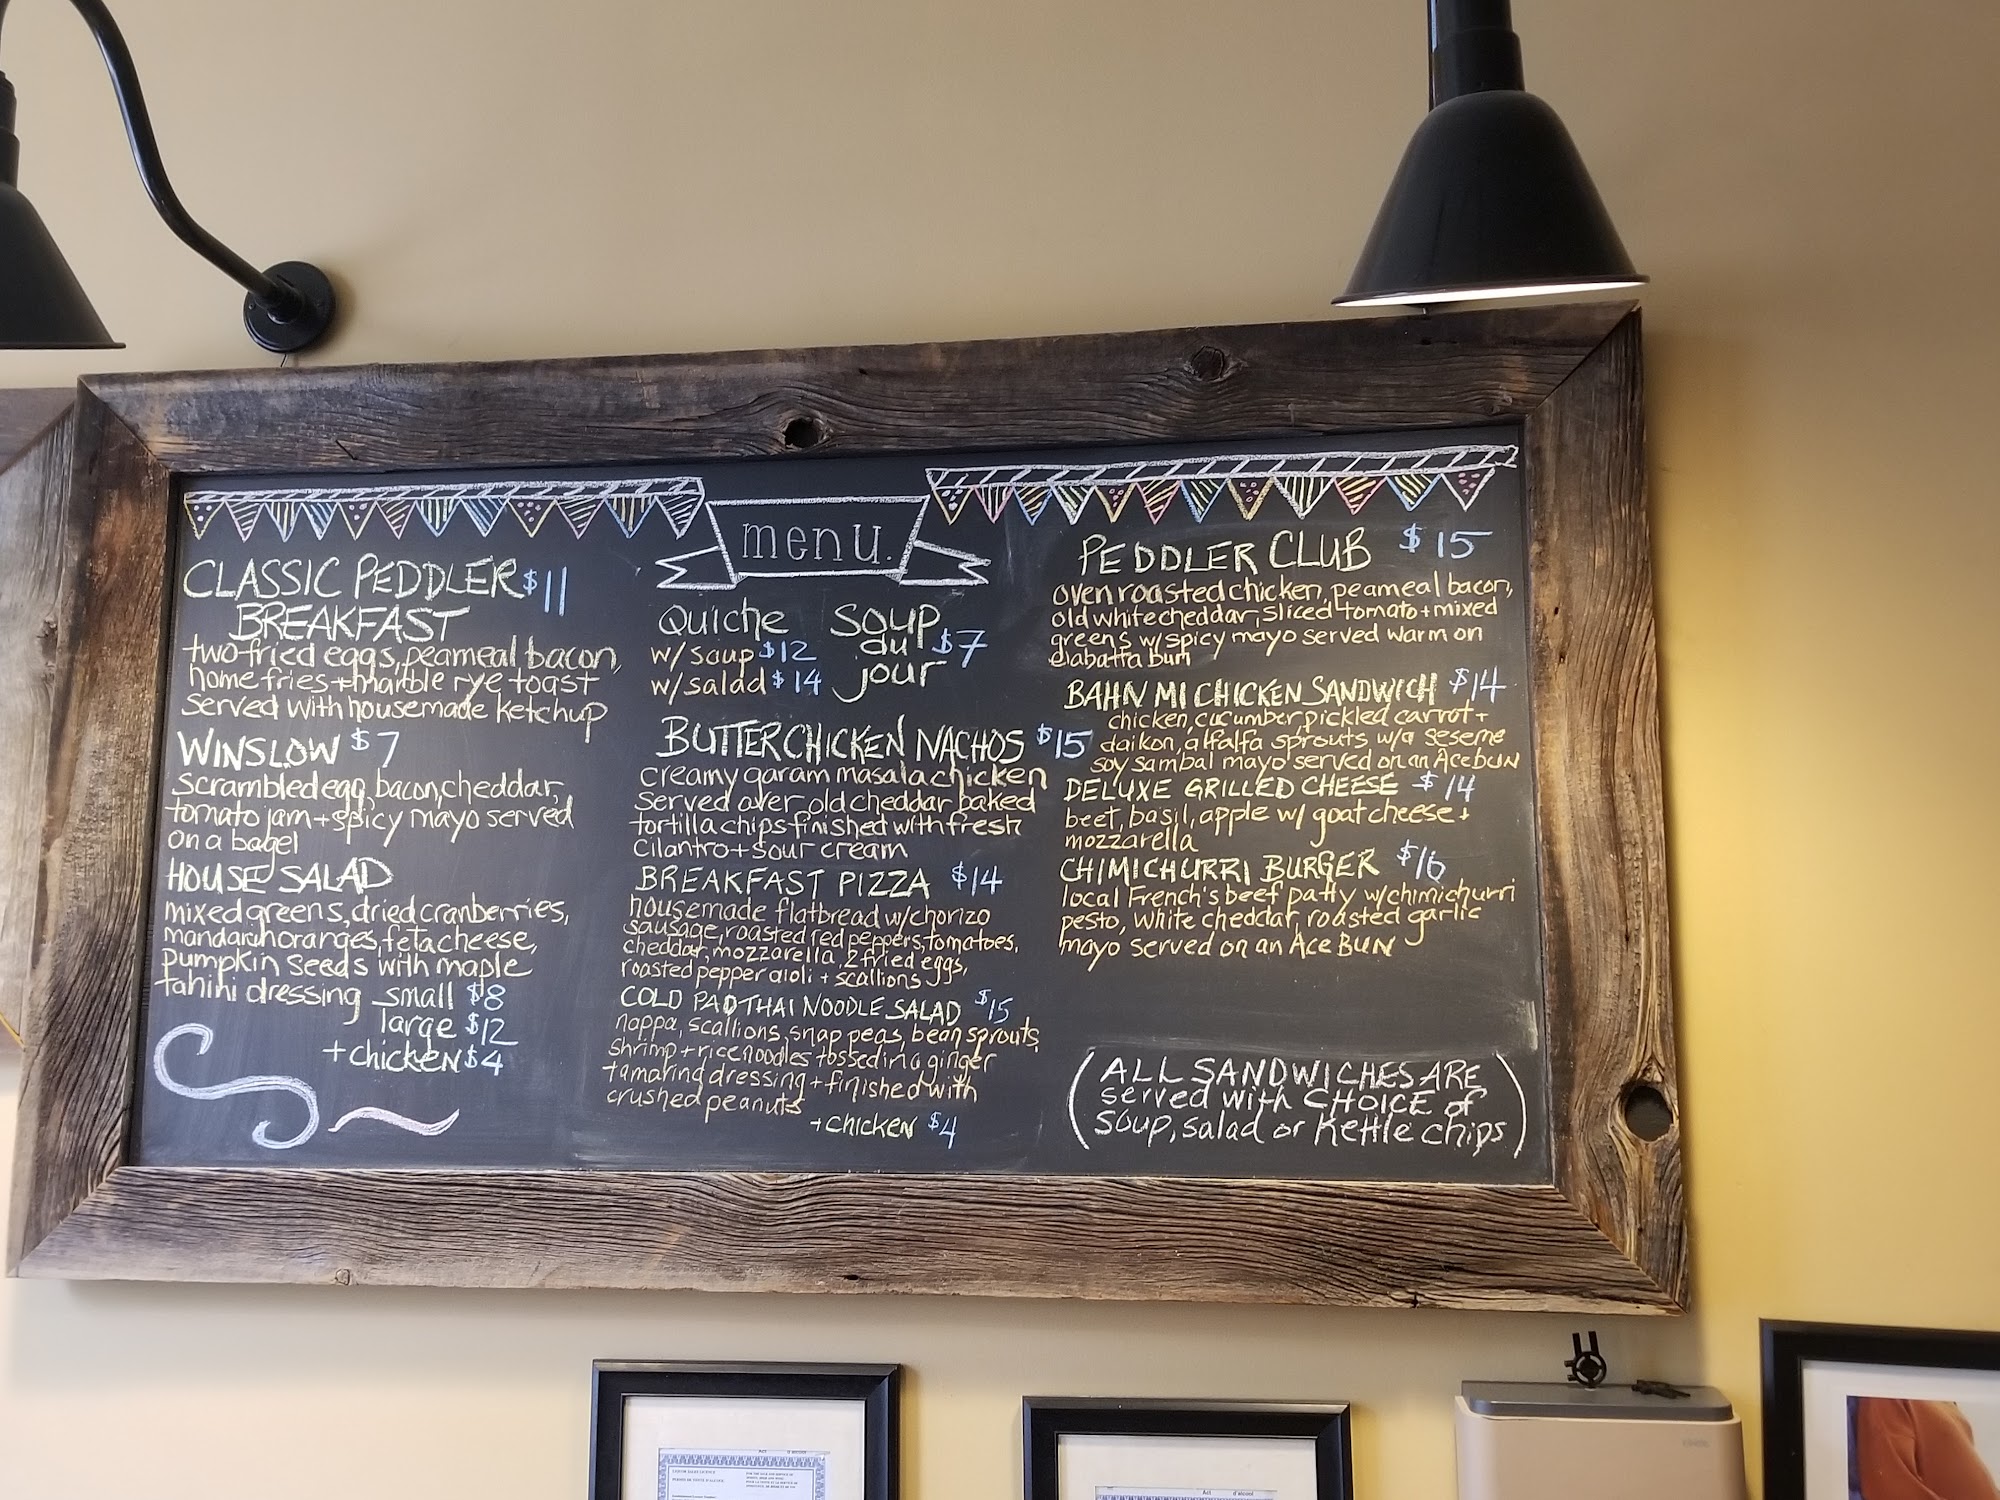 menu.
CLASSIC PEDDLER $11
BREAKFAST
two fried eggs, peameal bacon,
home fries + marble rye toast
served with housemade ketchup
WINSLOW $7
scrambled egg, bacon, cheddar,
tomato jam + spicy mayo served
on a bagel
HOUSE SALAD
mixed greens, dried cranberries,
mandarin oranges, feta cheese,
pumpkin seeds with maple
tahini dressing small $8
large $12
+ chicken $4
Quiche
w/ soup $12
w/ salad $14
Soup
du $7
jour
BUTTER CHICKEN NACHOS $15
creamy garam masala chicken
served over old cheddar baked
tortilla chips finished with fresh
cilantro + sour cream
BREAKFAST PIZZA $14
housemade flatbread w/ chorizo
sausage, roasted red peppers, tomatoes,
cheddar, mozzarella, 2 fried eggs,
roasted pepper aioli + scallions
COLD PAD THAI NOODLE SALAD $15
nappa, scallions, snap peas, bean sprouts,
shrimp + rice noodles tossed in a ginger
tamarind dressing + finished with
crushed peanuts
+ chicken $4
PEDDLER CLUB $15
oven roasted chicken, peameal bacon,
old white cheddar, sliced tomato + mixed
greens w/ spicy mayo served warm on
ciabatta bun
BAHN MI CHICKEN SANDWICH $14
chicken, cucumber, pickled carrot +
daikon, alfalfa sprouts w/a seseme
soy sambal mayo served on an Ace bun
DELUXE GRILLED CHEESE $14
beet, basil, apple w/ goat cheese +
mozzarella
CHIMICHURRI BURGER $16
local French's beef patty w/ chimichurri
pesto, white cheddar, roasted garlic
mayo served on an Ace Bun
(ALL SANDWICHES ARE
served with CHOICE of
soup, salad or Kettle chips)
Act d'alcool
LIQUOR SALES LICENCE
Act d'alcool